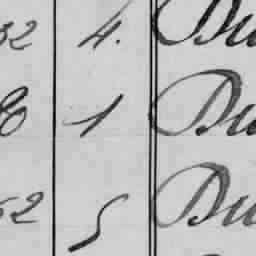 32 4. Du
1 Du
52 5 Du